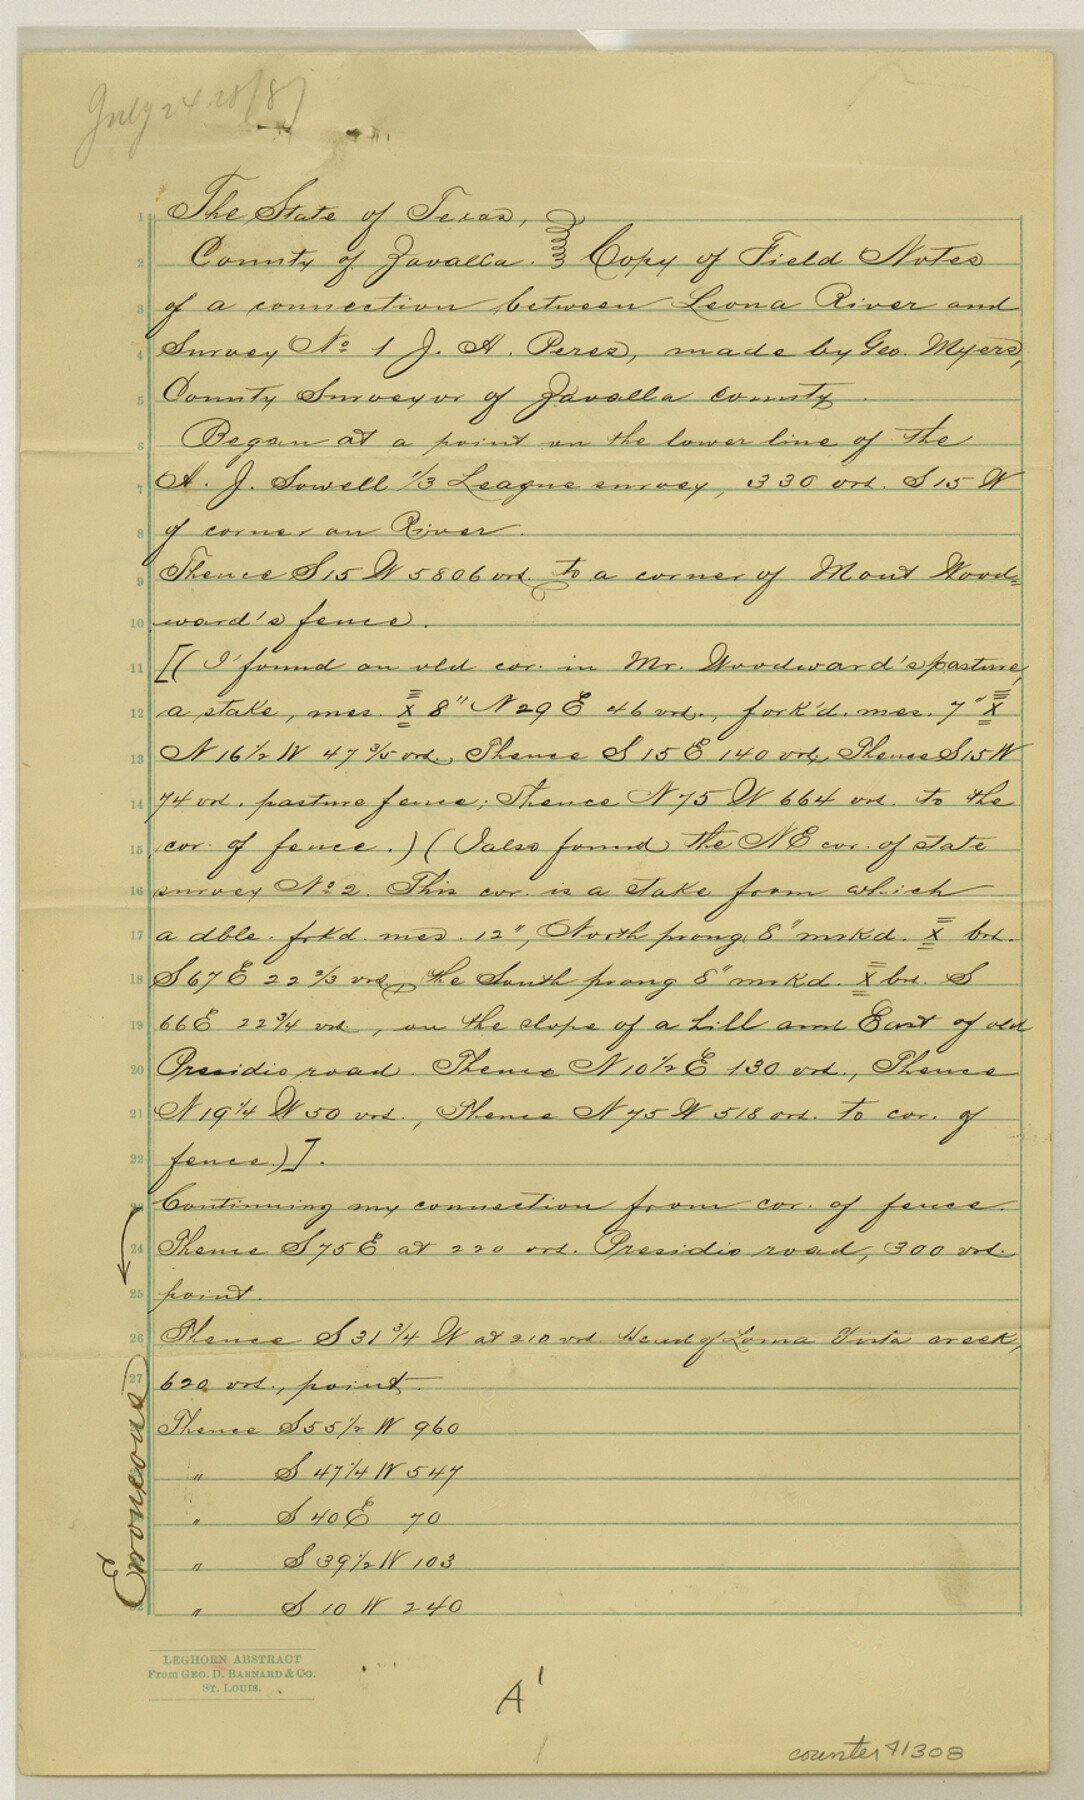 July 24
The State of Texas,
County of Zavalla. Copy of Field Notes
of a connection between Leona River and
Survey No 1 J. A. Peres, made by Geo. Myers,
County Surveyor of Zavalla county.
Began at a point on the lower line of the
A. J. Sowell 1/3 League survey, 330 vrs. S 15 W
of corner on River.
Thence S 15 W 5806 vrs. to a corner of Mont Wood=
ward's fence.
[( I found an old cor. in Mr. Woodward's pasture,
a stake, mes. X 8" N 29 E 46 vrs., fork'd. mes. 7" X
N 16 1/2 W 47 3/5 vrs., Thence S 15 E 140 vrs; Thence S 15 W
74 vrs. pasture fence; Thence N 75 W 664 vrs. to the
cor. of fence.) (I also found the NE cor. of state
survey No 2. This cor. is a stake from which
a dble. frkd. mes. 12", North prong 8" mrkd. X brs.
S 67 E 22 2/3 vrs., the South prong 8" mrkd. X brs. S
66 E 22 3/4 vrs., on the slope of a hill and East of old
Presidio road. Thence N 10 1/2 E 130 vrs., Thence
N 19 1/4 W 50 vrs., Thence N 75 W 518 vrs. to cor. of
fence.)].
Continuing my connection from cor. of fence.
Thence S 75 E at 220 vrs. Presidio road, 300 vrs.
point.
Thence S 31 3/4 W at 210 vrs. Head of Loma Vista creek,
620 vrs., point.
Thence S 55 1/2 W 960
" S 47 1/4 W 547
" S 40 E 70
" S 39 1/2 W 103
" S 10 W 240
Erroneous
LEGHORN ABSTRACT
From GEO. D. BARNARD & CO.
ST. LOUIS.
A'
1
counter 41308